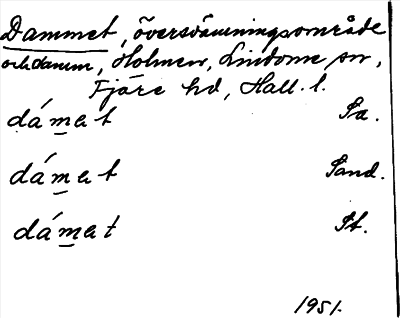 Dammet, översvämningsområde
och damm, Holmen, Lindome sn,
Fjäre hd, Hall. l.
dámat Sa.
dámat Sand.
dámat St.
1951.